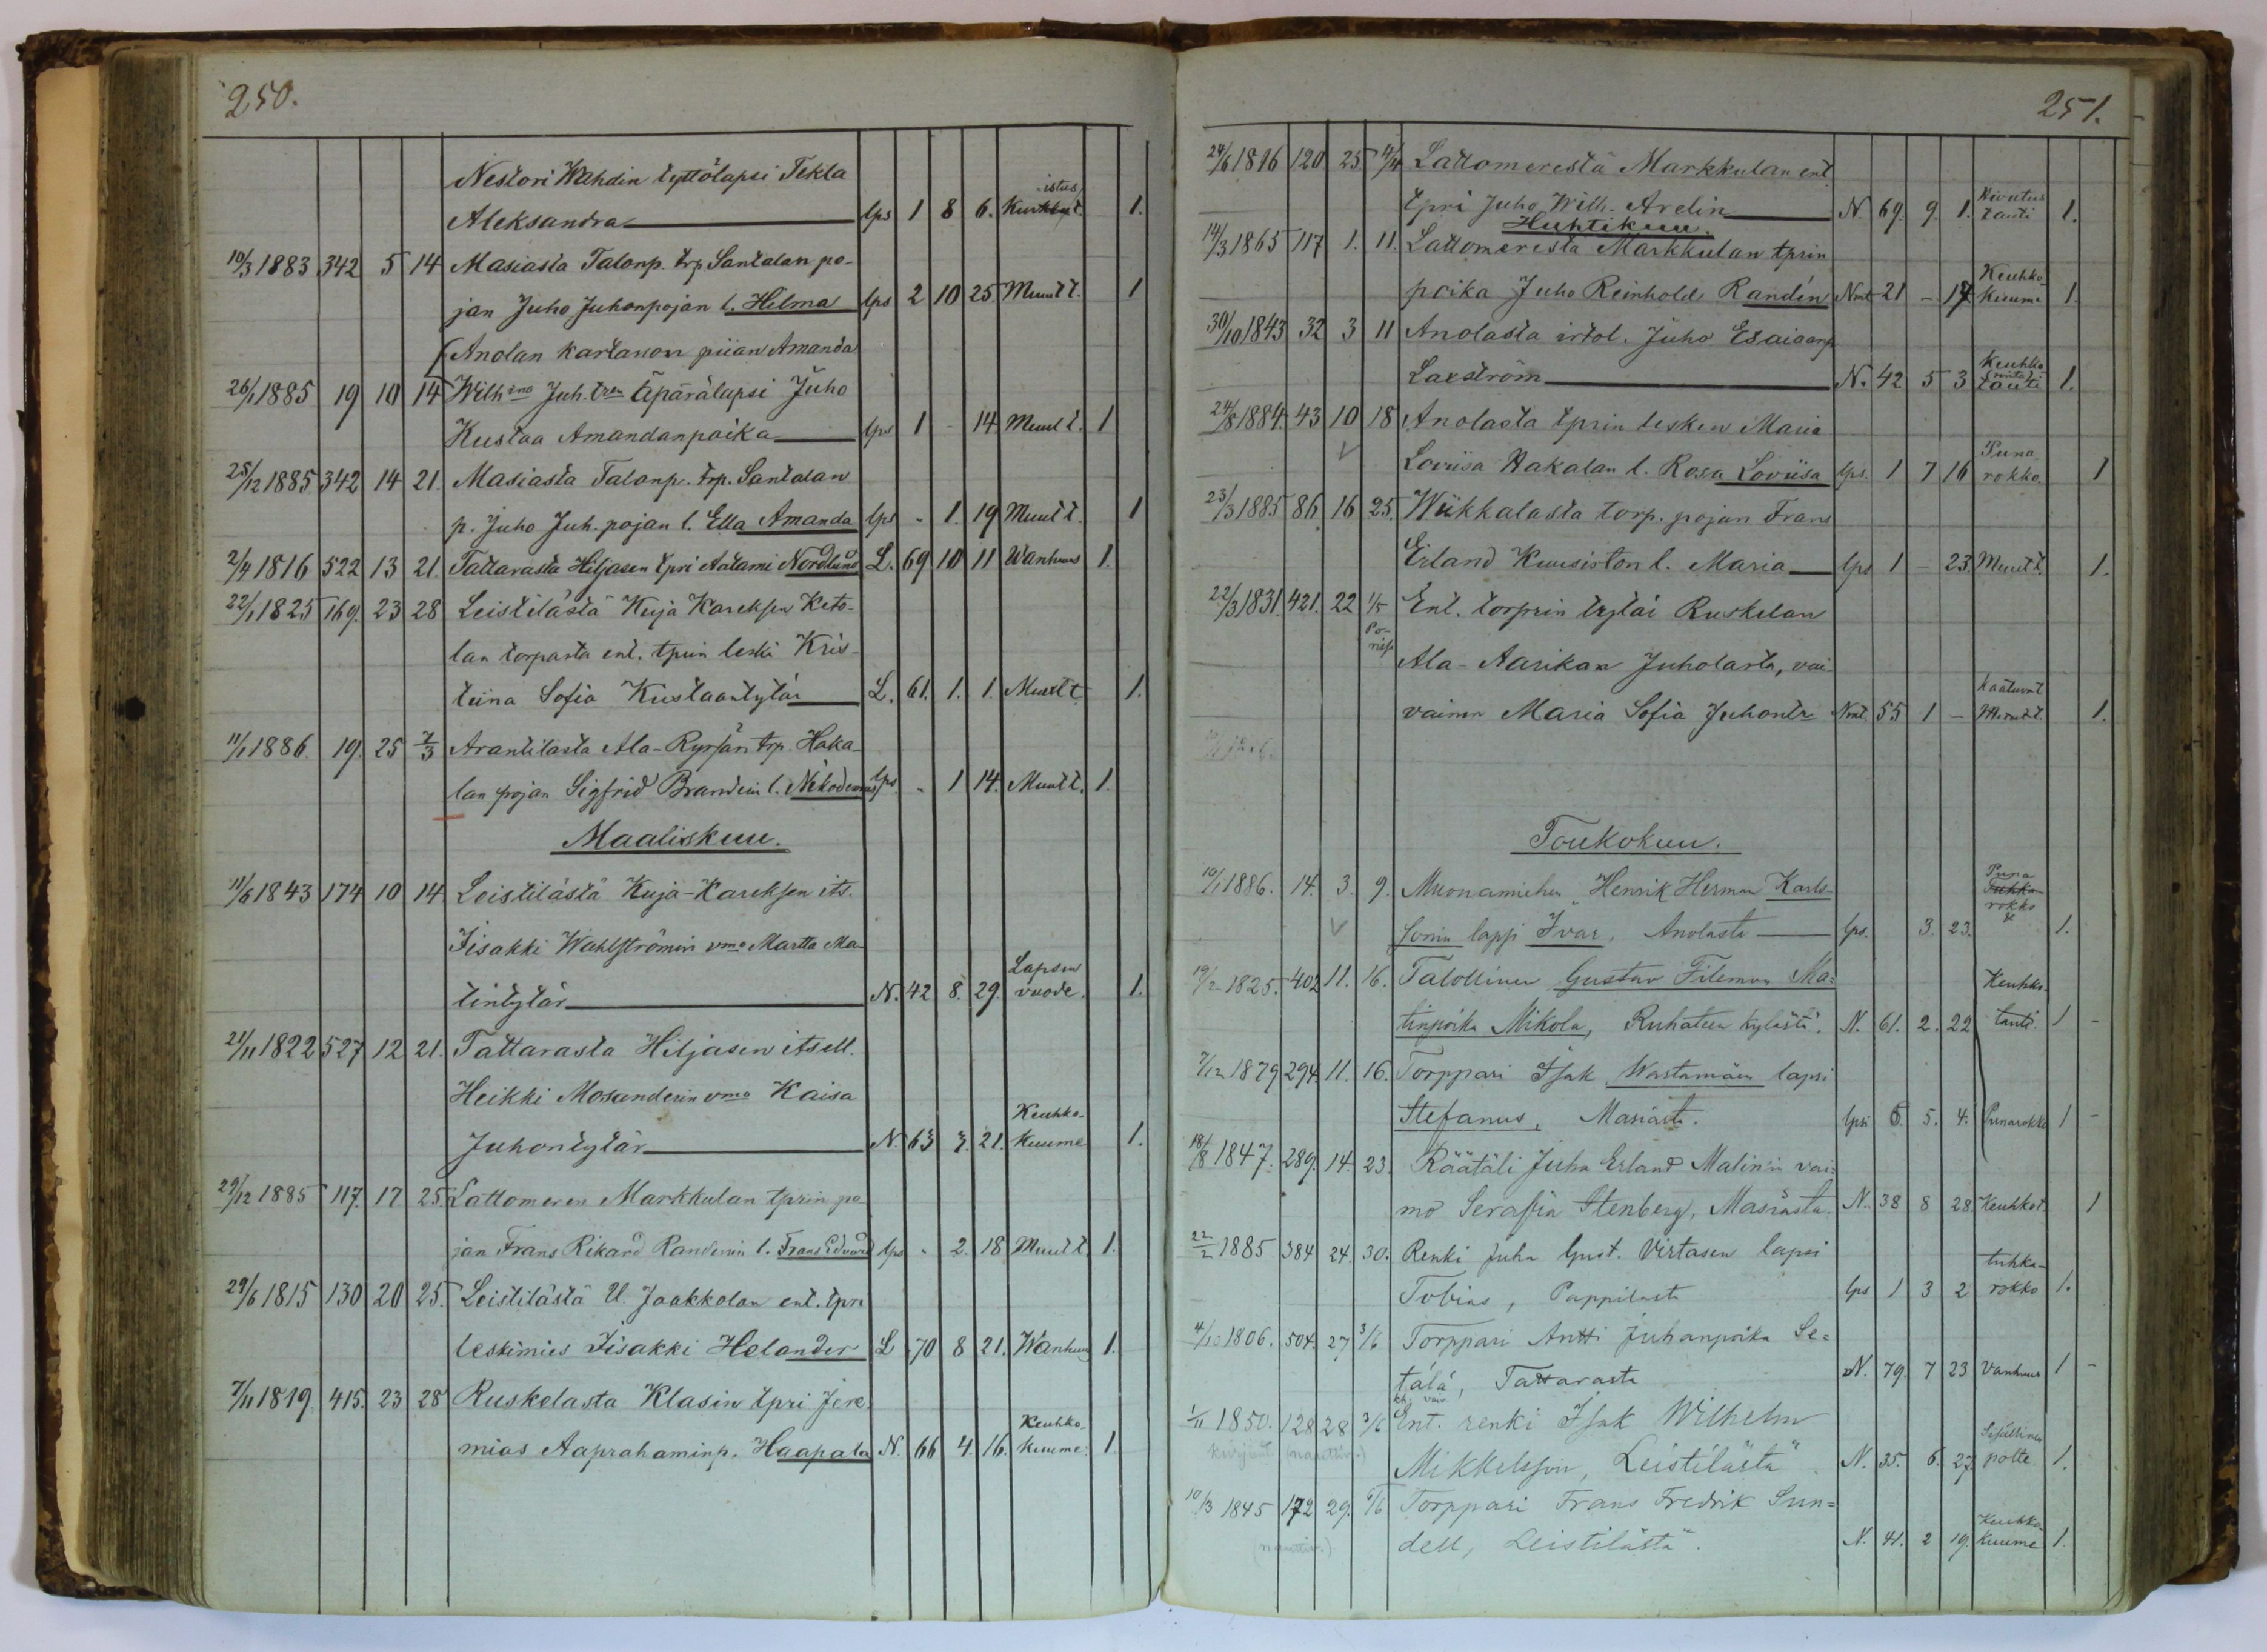 250.
Nestori Wahdin tyttölapsi Tekla
Aleksandra lps 1 8 6. istus 1.
10/3 1883 342 5 14 Masiasta Talonp. trp Santalan po-
jan Juho Juhonpojan l. Hilma lps 2 10 25. Muut t. 1
Anolan kartanon piian Amanda
26/1 1885 19 10 14 Wilh:ina Juh. tren äpärälapsi Juho
Kustaa Amandanpoika lps 1 - 14. Muut t. 1
25/12 1885 342 14 21. Masiasta Talonp. trp. Santalan
p. Juho Juh. pojan l. Ella Amanda lps " 1. 19 Muut t. 1
2/4 1816 522 13 21. Tattarasta Hiljasen tpri Aatami Nordlund L. 69 10 11 Wanhuus 1.
22/1 1825 169. 23 28 Leistilästä Kuja Kareksen Keto-
lan torpasta ent. tprin leski Kris-
tiina Sofia Kustaantytär L. 61. 1. 1. Muut t. 1.
11/1 1886. 19. 25 7/3 Arantilasta Ala-Ryssän trp. Haka-
lan pojan Sigfrid Brandein l. Nikodemus lps. " 1 14. Muut t. 1.
Maaliskuu.
11/6 1843 174 10 14. Leistilästä Kuja-Kareksen its.
Iisakki Wahlströmin vmo Martta Ma-
tintytär N. 42 8. 29. Lapsen vuode. 1.
21/11 1822 527 12 21. Tattarasta Hiljasen itsell.
Heikki Mosanderin vmo Kaisa
Juhontytär N. 63 3. 21. Keuhko-kuume 1.
29/12 1885 117. 17 25. Lattomeren Markkulan tprin po
jan Frans Rikard Randenin l. Frans Edvard lps " 2. 18 Muut t. 1.
29/6 1815 130 20 25. Leistilästä U. Jaakkolan ent. tpri
leskimies Iisakki Helander L 70 8 21. Wanhuus 1.
7/11 1819. 415. 23 28 Ruskelasta Klasin tpri Jere-
mias Aaprahaminp. Haapala N. 66 4. 16. Keuhko-kuume. 1.
251.
24/6 1816 120 25 11/4 Lattomerestä Markkulan ent.
tpri Juho Wilh. Avelin N. 69. 9. 1. Kivutus tauti 1.
Huhtikuu.
14/3 1865 117 1. 11. Lattomeresta Markkulan tprin
poika Juho Reinhold Randén Nmt 21 - 17 Keuhko-kuume 1.
30/10 1843 32 3 11 Anolasta irtol. Juho Esaiaanp
Laxström N. 42 5 3 Keuhko tauti 1.
24/8 1884. 43 10 18 Anolasta tprin lesken Maria
Loviisa Hakalan l. Rosa Loviisa lps. 1 7 16 Puna rokko 1
23/3 1885 86 16 25. Wiikkalasta torp. pojan Frans
Erland Kuusiston l. Maria lps 1 - 23. Muut t. 1.
22/3 1831. 421. 22 1/5 Ent. torprin tytär Ruskelan
Ala-Aarikan Juholasta, vai-
vainen Maria Sofia Juhontr Nmt. 55 1 - kaatuvat 1.
Toukokuu.
10/1 1886. 14. 3. 9. Muonamiehen Henrik Herman Karls-
sonin lapsi Ivar, Anolasta lps. 3. 23. Puna rokko 1.
19/2 1825. 402 11. 16. Talollinen Gustav Filemon Ma=
tinpoika Mikola, Ruhaten kylästä. N. 61. 2. 22 Keuhko-tauti. 1 -
7/12 1879 294. 11. 16. Torppari Isak Wastamäen lapsi
Stefanus, Masiasta. lpsi 6. 5. 4. Punarokko 1 -
18/8 1847. 289. 14. 23. Räätäli Juha Erland Malinin vai=
mo Serafia Stenberg, Masiasta. N. 38 8 28. Keuhkot. 1
22/2 1885 384 24. 30. Renki Juha Gust. Virtasen lapsi
Tobias, Pappilasta lps 1 3 2 tuhka-rokko 1.
4/10 1806. 504. 27 3/6 Torppari Antti Juhanpoika Se=
tälä, Tattarasta N. 79. 7 23 Vanhuus 1 -
1/11 1850. 128 28 3/6 Ent. renki Isak Wilhelm
Mikkelsson, Leistilästä N. 35. 6. 27. Sisällinen polte 1.
10/3 1845 172 29. 6/6 Torppari Frans Fredrik Sun=
dell, Leistilästä. N. 41. 2 19. Keuhko-kuume 1.